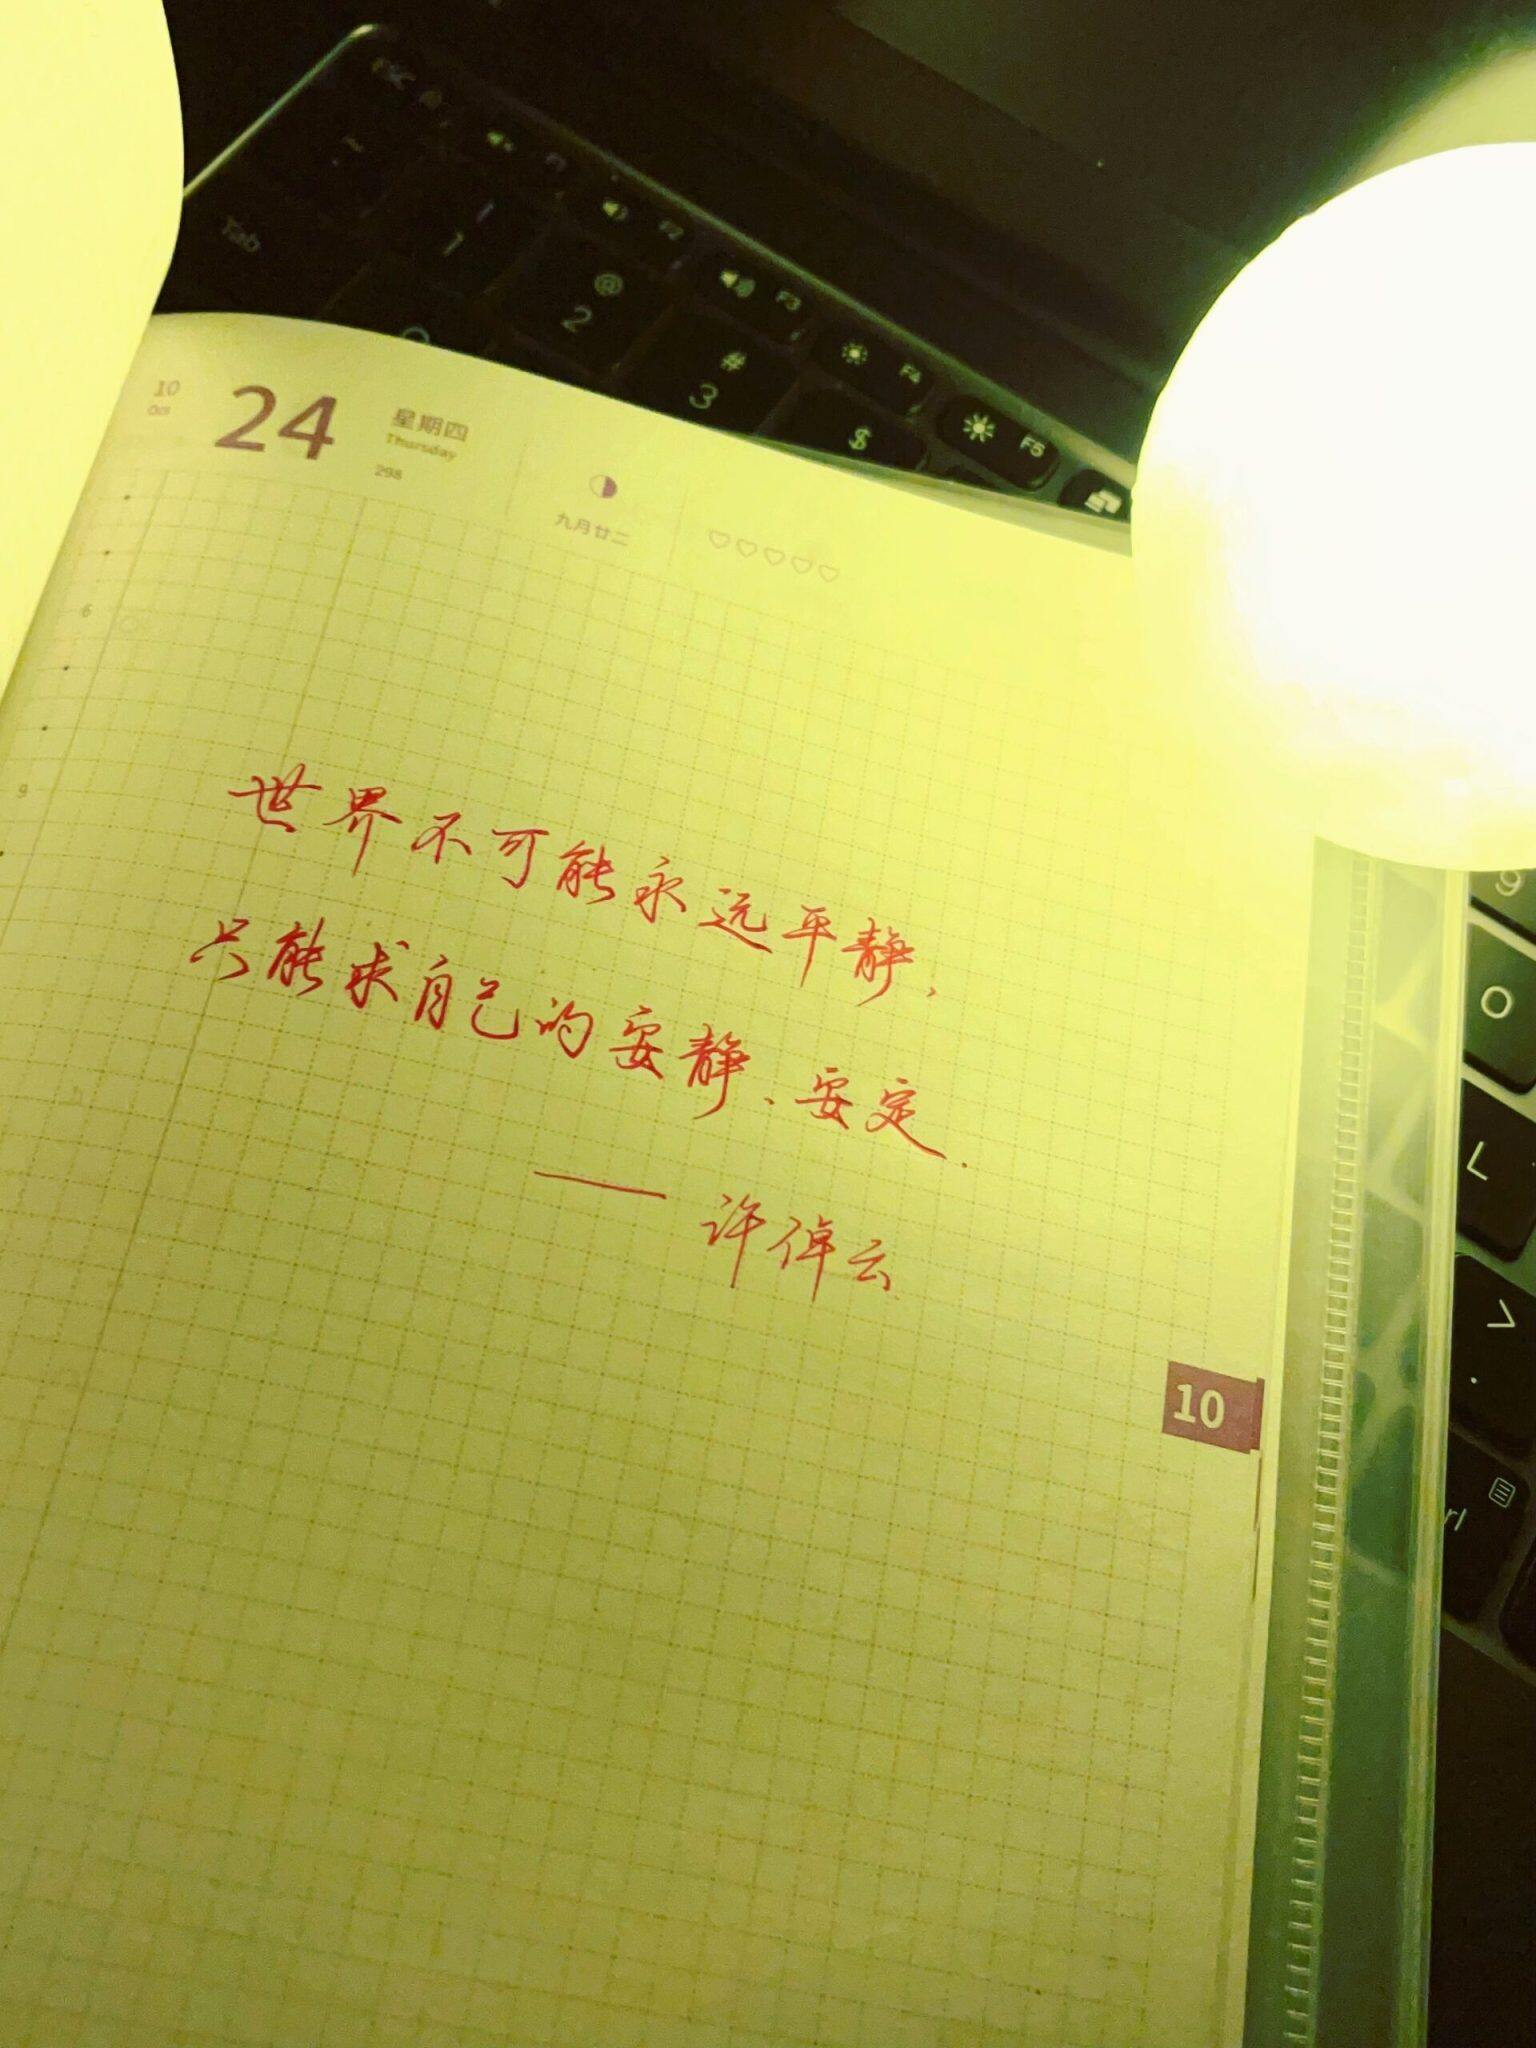 10
Oct
24
星期四
Thursday
298
九月廿二
6
9
世界不可能永远平静,
只能求自己的安静、安定.
—— 许倬云
10
Tab
1
@
2
F2
#
3
F3
F4
$
F5
9
O
L
>
.